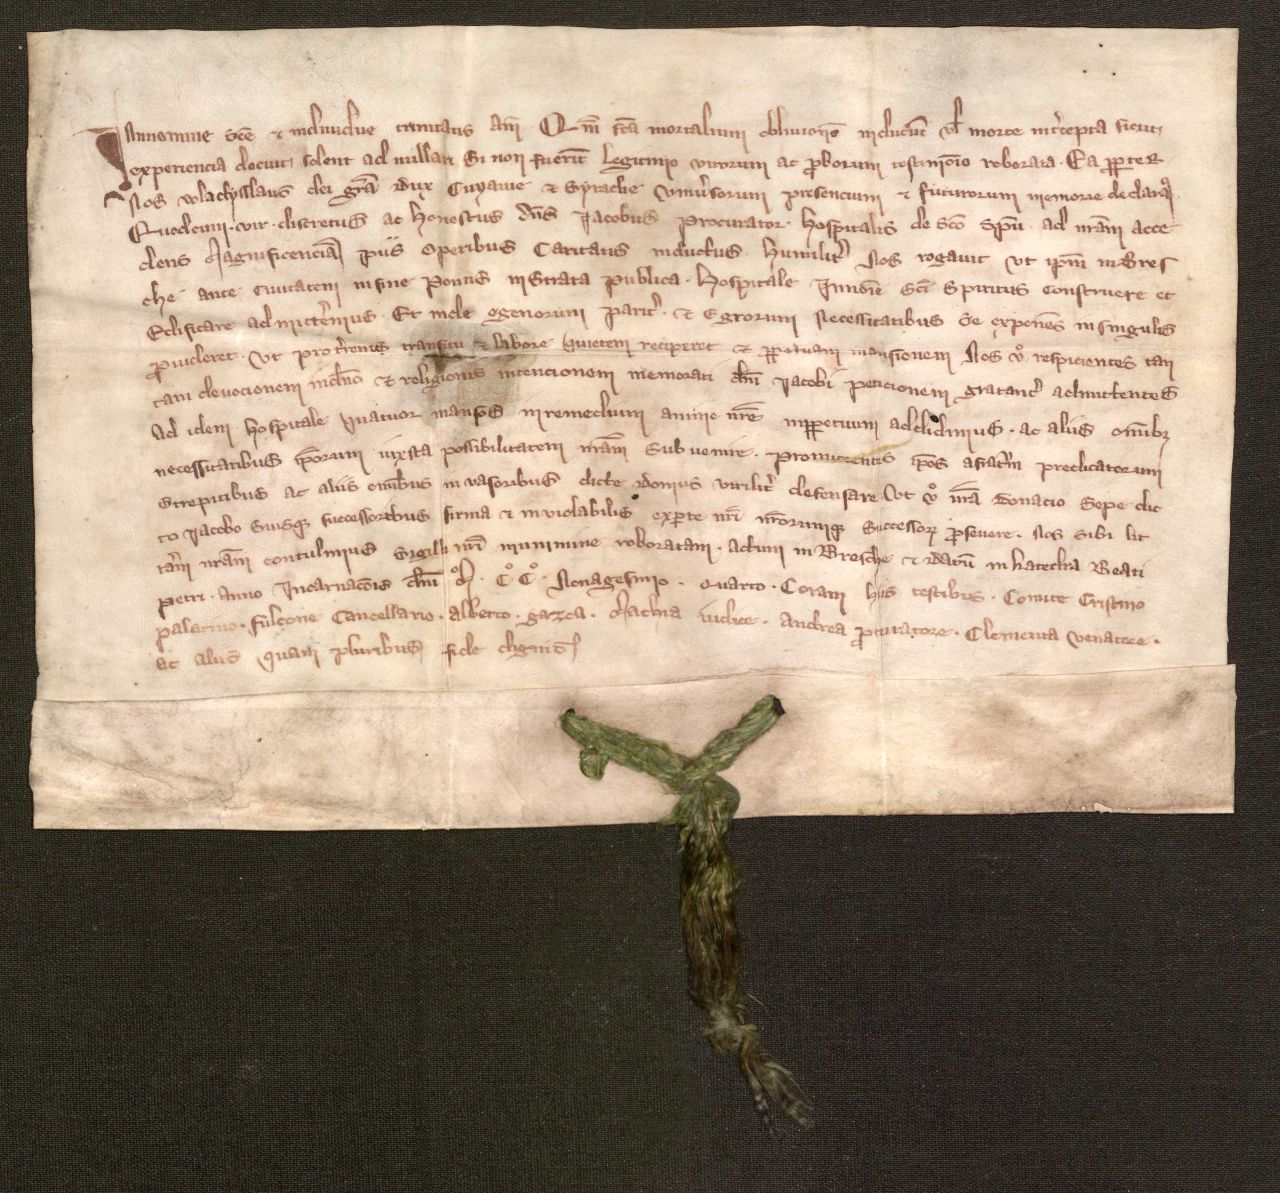 In nomine sc̄e ⁊ individue trinitatis am̄ Qm̄ fc̄a mortalium oblivione inducūt vl̓ morte int̓cepta sicut
experiencia docuit solent adnullari Si non fuerīt Legitimo virorum ac ꝓborum testimōio roborata. Ea ꝓpter
Nos wladysslaus dei gr̄a dux Cuyavie ⁊ Syradie Univ̓sorum presencium ⁊ futurorum memorie declaram᷒
Quod cum. vir. discretus ac Honestus dn̄s Jacobus procurator. Hospitalis de Sc̄o Sp̄u ad nr̄am acce
dens Magnificenciam piis operibus Caritatis inductus. Humilit̓ Nos rogavit ut ip̄m in Bres
che ante civitatem in fine Pontis in Strata publica. Hospitale In noīe Sc̄i Spiritus Construere et
Edificare admict̓emus. Et inde egenorum parit̓. ⁊ Egrorum Necessitatibus expen̄s in singulis
ꝓvideret. ut transitu ⁊ labore quietem reciperet ⁊ ꝑpetuam mansionem Nos v̊ respicientes tan
tam devocionem ⁊ religionis intencionem memorati dn̄i Jacobi peticionem gratant̓ admittentes
Ad idem Hospitale quatuor mansos in remedium anime nr̄e inꝑpetuum addidimus. ac aliis om̄ibꝫ
necessitatibus ip̄orum iuxsta possibilitatem nr̄am Subvenire. promittentes ip̄os predicatorum
Strepitibus ac aliis om̄ibus invasoribus dicte domus virilit̓ defensare Ut v̊ nr̄a donacio Sepe dic
to Jacobo Suisqꝫ successoribus firma ⁊ inviolabilis exparte nr̄i nr̄orumqꝫ Successoꝝ ꝑsevere. Nos sibi lit
tr̄am nr̄am contulimus Sigilli nr̄i munimine roboratam. actum in Bresche ⁊ datū in katedra Beati
petri. Anno Incarnac̄ois dn̄i M̊. C̊ C̊. Nonagesimo. Quarto. Coram his testibus. Comite Cristino
palatino. fulcone Cancellario. alberto. gazca. Machia iudice. Andrea ꝓcuratore. Clementa venatore.
ac aliis quam pluribus fide dignis